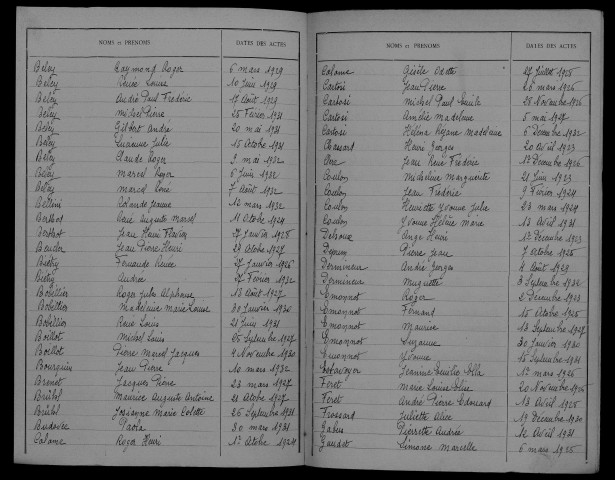 NOMS et PRÉNOMS DATES DES ACTES
Beley Raymond Roger 6 mars 1929
Beley Renée Louise 10 Juin 1929
Beley André Paul Frédéric 17 Août 1929
Beley Michel Pierre 25 Février 1931
Beley Gilbert André 20 mai 1931
Beley Suzanne Julie 15 Octobre 1931
Beley Claude Roger 2 mai 1932
Beley Marcel Roger 6 Juin 1932
Beley Marcel René 7 Août 1932
Bellini Rolande Jeanne 12 mars 1932
Berthot René Auguste Marcel 11 Octobre 1924
Berthot Jean Henri Florian 17 Janvier 1925
Beuder Jean Pierre Henri 23 Octobre 1927
Biétry Fernande Renée Janvier 1926
Biétry Andrée 17 Février 1932
Bobillier Roger Jules Alphonse 13 Août 1927
Bobillier Madeleine Marie Louise 30 Janvier 1930
Bobillier René Louis 21 Juin 1931
Boillot Michel Louis 25 Septembre 1927
Boillot Pierre Marcel Jacques 4 Novembre 1930
Bourquin Jean Pierre 10 mars 1932
Brenet Jacques Pierre 23 mars 1927
Brûlot Maurice Auguste Antoine 21 Octobre 1927
Brûlot Josianne Marie Colette 26 Septembre 1931
Budovec Paola 30 mars 1931
Calame Roger Henri 1er Octobre 1924
NOMS et PRÉNOMS DATES DES ACTES
Calame Gisèle Odette 27 Juillet 1925
Cartosi Jean Pierre 26 mars 1926
Cartosi Michel Paul Emile 25 Novembre 1926
Cartosi Amélie Madeleine 5 mai 1927
Cartosi Héléna Régane Madeleine 6 Décembre 1932
Chassard Henri Georges 20 Avril 1923
Jean René Frédéric 1er Décembre 1926
Coulon Micheline Marguerite 21 Juin 1923
Coulon Jean Frédéric 9 Février 1924
Coulon Henriette Yvonne Julie 23 mars 1929
Coulon Yvonne Hélène Marie 13 Avril 1931
Ange Henri 1er Décembre 1923
Pierre Jean 7 Octobre 1925
Dormineur André Georges 4 Août 1923
Dormineur Muguette 3 Septembre 1932
Emonnot Roger 2 Décembre 1923
Emonnot Fernand 15 Octobre 1925
Emonnot Maurice 13 Septembre 1927
Emonnot Suzanne 30 Janvier 1930
Emonnot Yvonne 15 Septembre 1931
Estavoyer Jeanne Emilie 1er mars 1926
Féret Marie Louise 20 Novembre 1926
Féret André Pierre Edouard 13 Avril 1925
Frossard Juliette Alice 19 Décembre 1930
Gabus Pierrette Andrée 12 Avril 1931
Gaudet Simone Marcelle 6 mars 1925